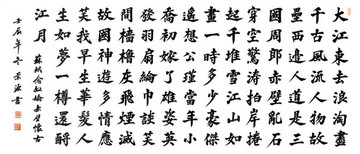 大江東去浪淘盡
千古風流人物故
壘西邊人道是三
國周郎赤壁亂石
穿空驚濤拍岸捲
起千堆雪江山如
畫一時多少豪傑
遙想公瑾當年小
喬初嫁了雄姿英
發羽扇綸巾談笑
間檣櫓灰飛煙滅
故國神遊多情應
笑我早生華髮人
生如夢一樽還酹
江月
蘇軾念奴嬌赤壁懷古
壬辰年冬書